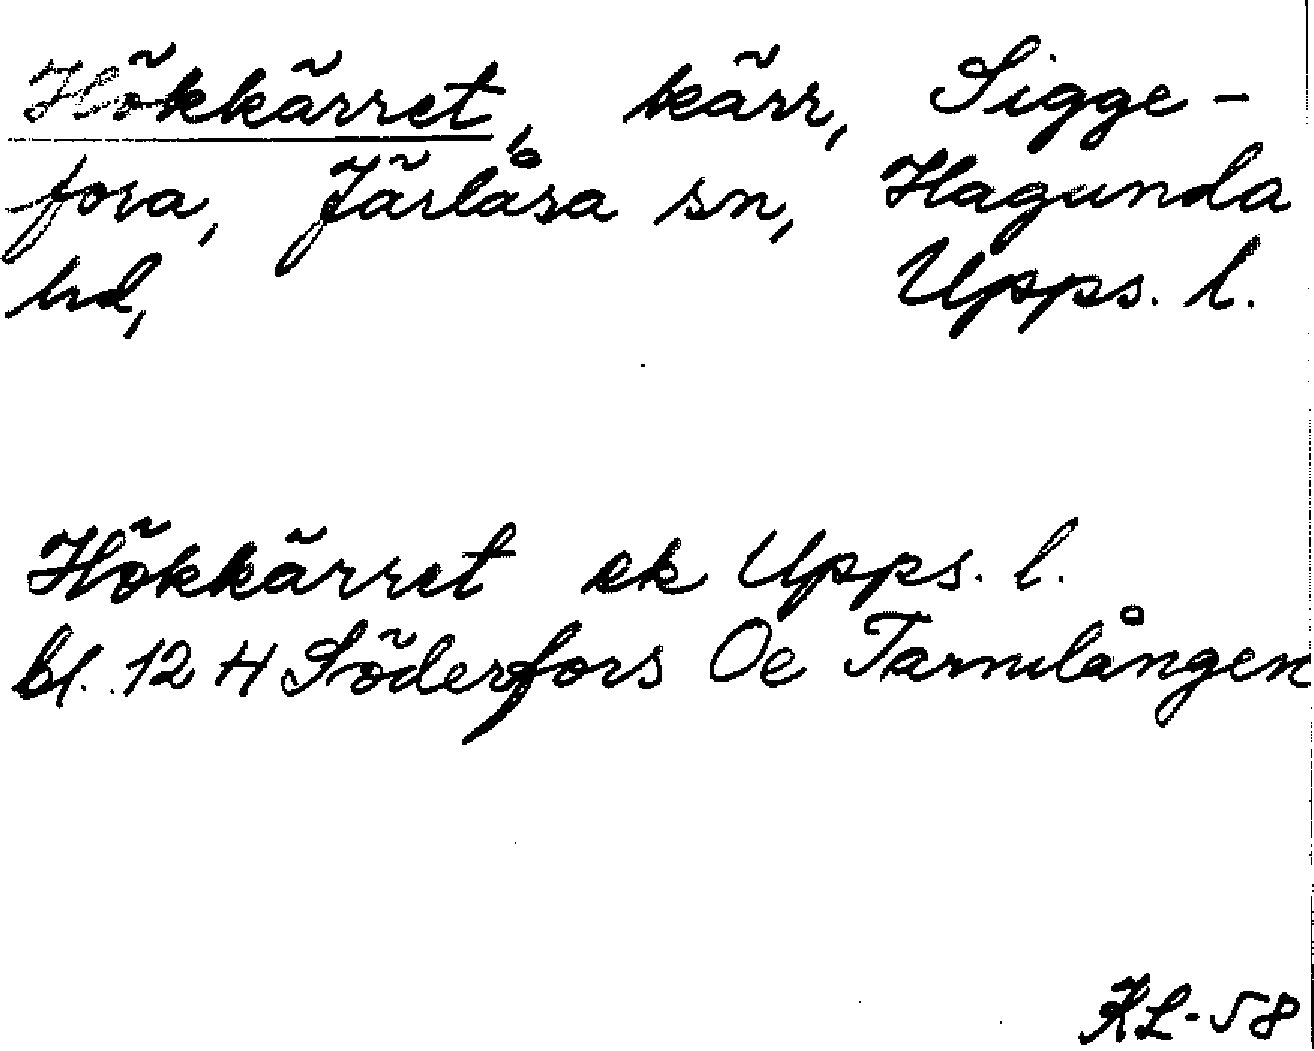 Hökkärret, kärr, Sigge-
fora, Järlåsa sn, Hagunda
hd, Upps. l.
Hökkärret ek Upps. l.
bl. 12 H Söderfors Oe Tarmlången
KL-58